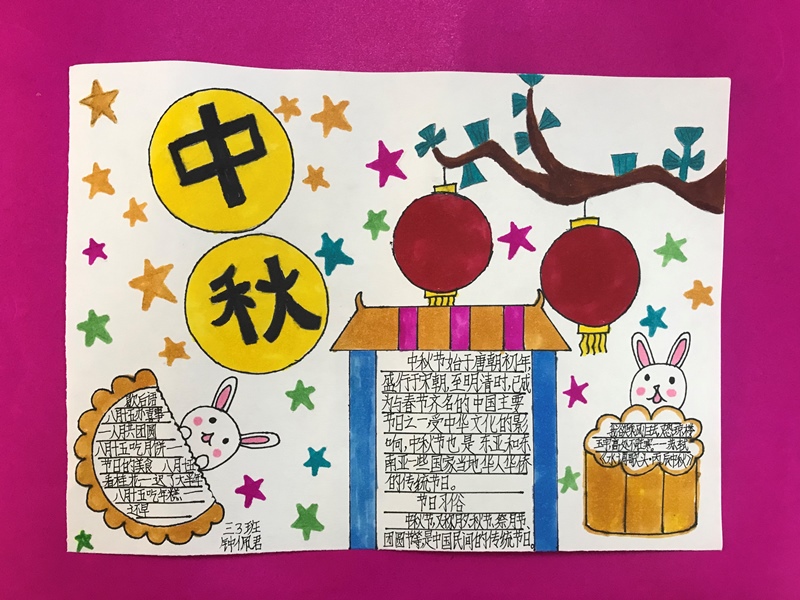 中
秋
歇后语
八月十五办喜事
一人月团圆
八月十五吃月饼
节日的美食 八月十五
看桂花
八月十五吃年糕一
还早
三3班
钟佩君
中秋节始于唐朝初年,
盛行于宋朝,至明清时,已成
为与春节齐名的中国主要
节日之一受中华文化的影
响,中秋节也是东亚和东
南亚一些国家当地华人华侨
的传统节日。
节日习俗
中秋节又称月夕、秋节、祭月节、
团圆节等是中国民间的传统节日。